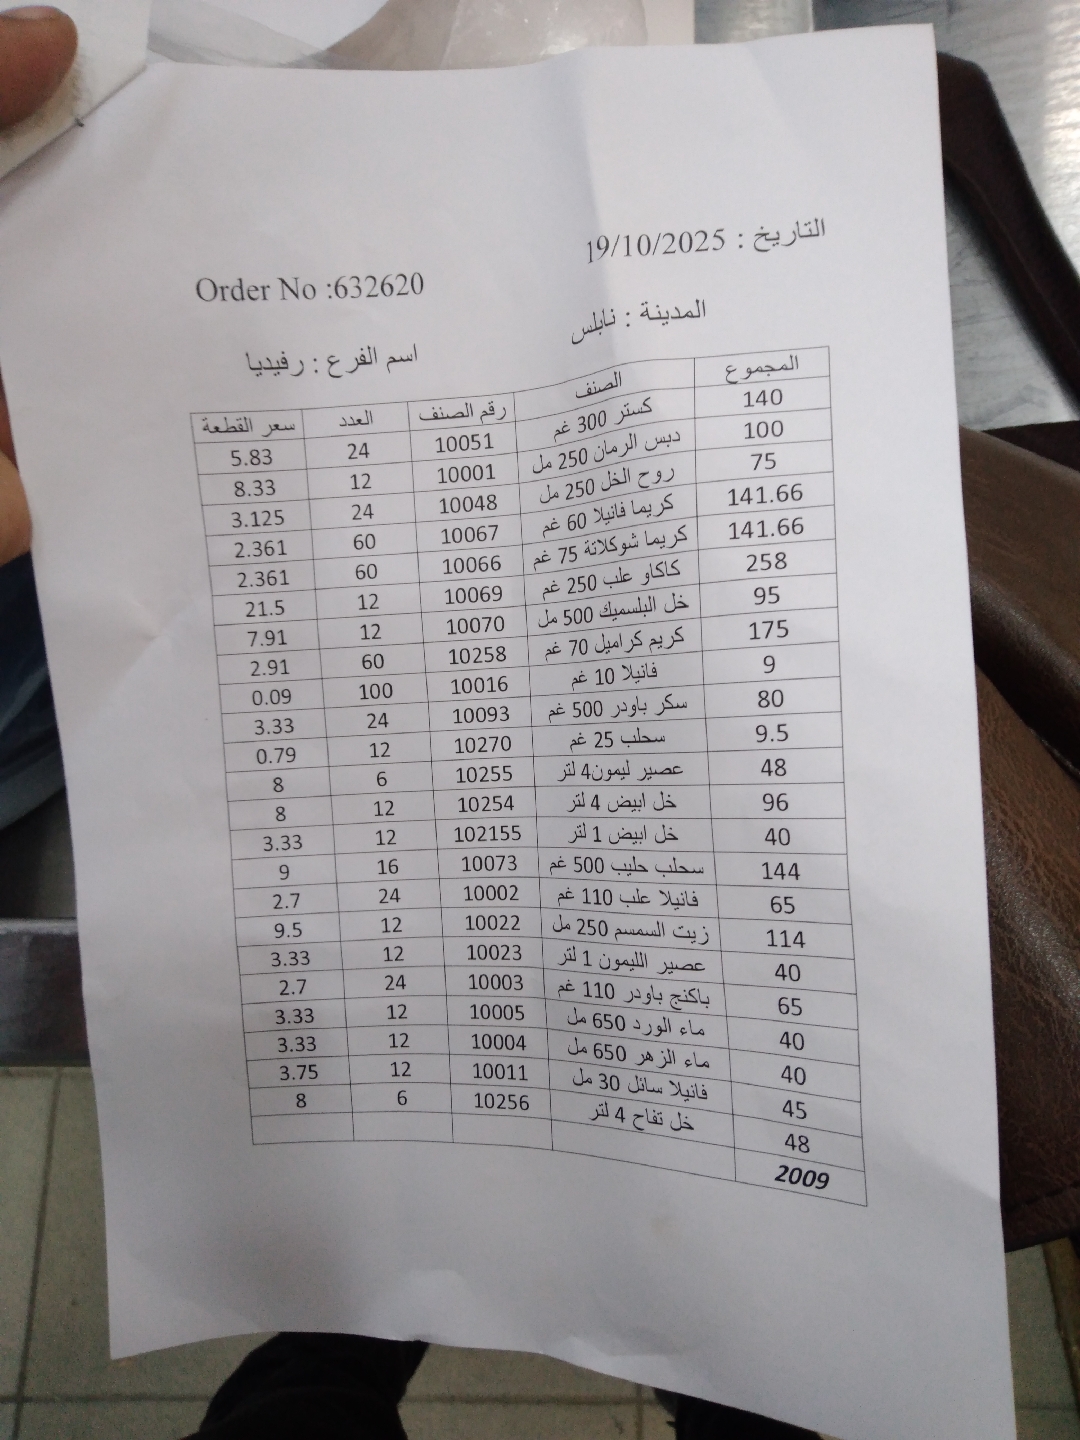 التاريخ : 19/10/2025
Order No :632620
المدينة : نابلس
اسم الفرع : رفيديا
المجموع الصنف رقم الصنف العدد سعر القطعة
140 كستر 300 غم 10051 24 5.83
100 دبس الرمان 250 مل 10001 12 8.33
75 روح الخل 250 مل 10048 24 3.125
141.66 كريما فانيلا 60 غم 10067 60 2.361
141.66 كريما شوكلاتة 75 غم 10066 60 2.361
258 كاكاو علب 250 غم 10069 12 21.5
95 خل البلسميك 500 مل 10070 12 7.91
175 كريم كراميل 70 غم 10258 60 2.91
9 فانيلا 10 غم 10016 100 0.09
80 سكر باودر 500 غم 10093 24 3.33
9.5 سحلب 25 غم 10270 12 0.79
48 عصير ليمون4 لتر 10255 6 8
96 خل ابيض 4 لتر 10254 12 8
40 خل ابيض 1 لتر 102155 12 3.33
144 سحلب حليب 500 غم 10073 16 9
65 فانيلا علب 110 غم 10002 24 2.7
114 زيت السمسم 250 مل 10022 12 9.5
40 عصير الليمون 1 لتر 10023 12 3.33
65 باكنج باودر 110 غم 10003 24 2.7
40 ماء الورد 650 مل 10005 12 3.33
40 ماء الزهر 650 مل 10004 12 3.33
45 فانيلا سائل 30 مل 10011 12 3.75
48 خل تفاح 4 لتر 10256 6 8
2009